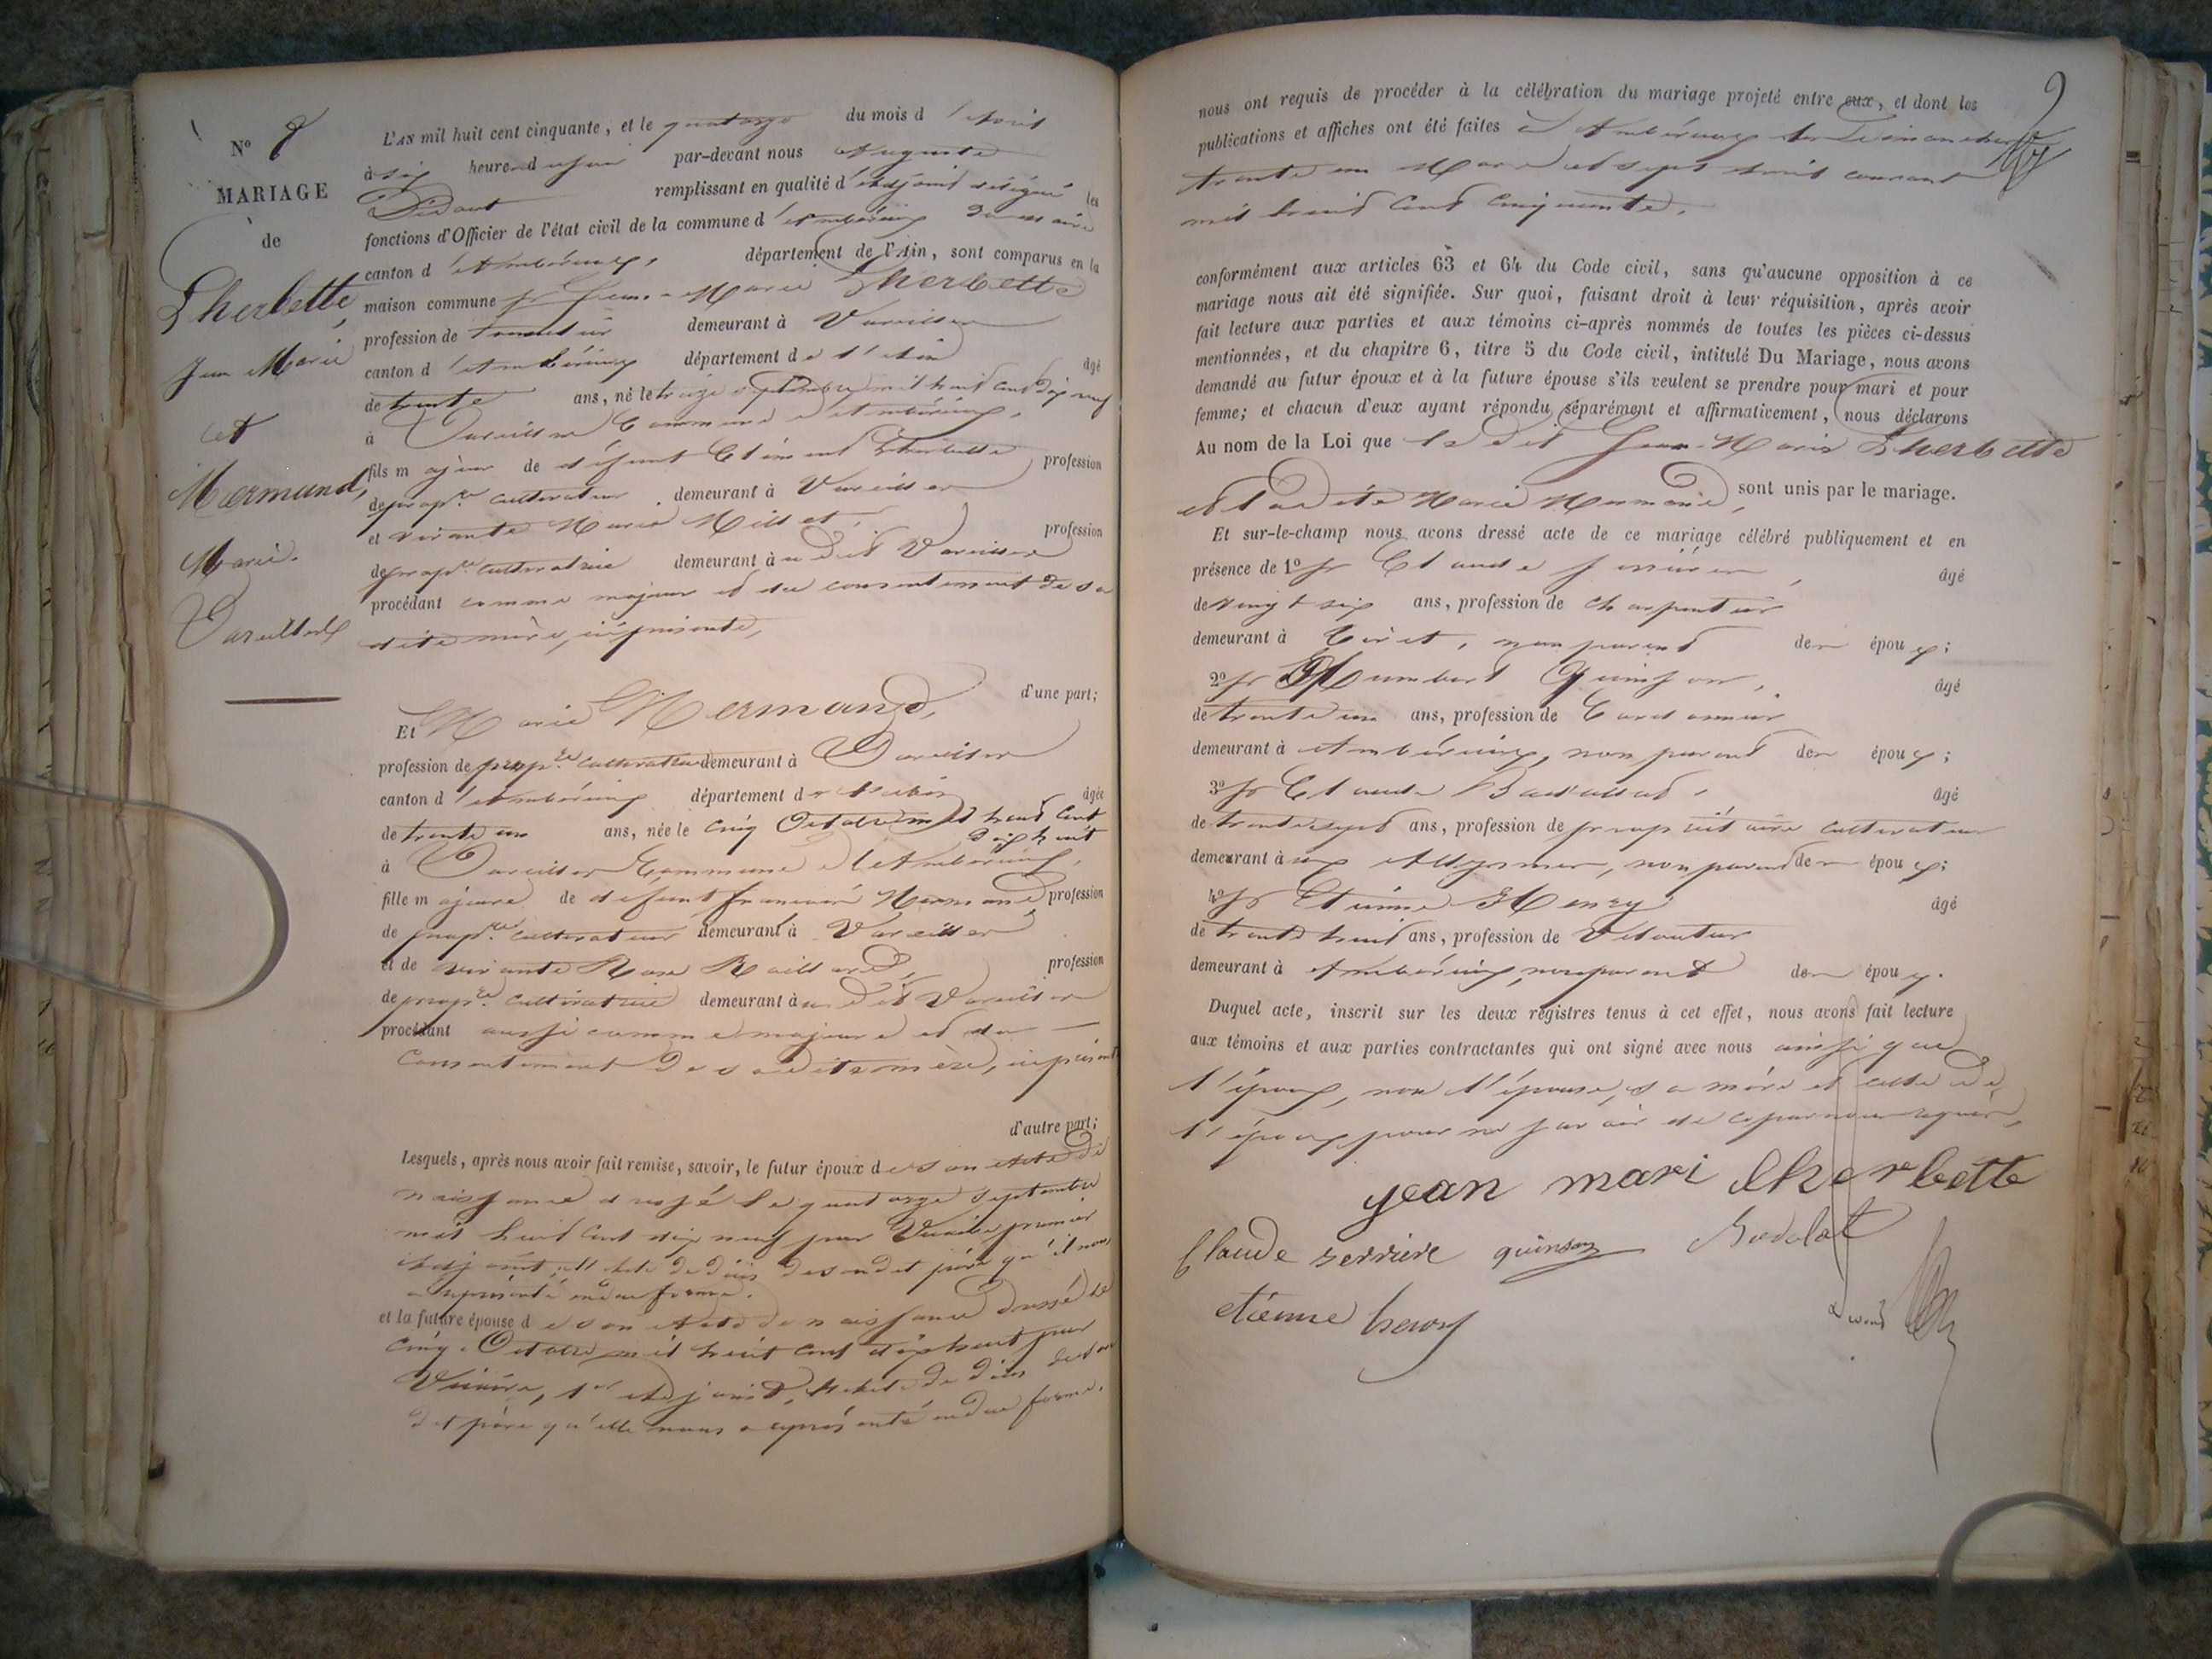 N° 8
MARIAGE
de
Lherbette,
Jean Marie
et
Mermand,
Marie.
Vareilles
L'AN mil huit cent cinquante, et le quatorze du mois d'Avril
à six heures du soir par-devant nous Auguste
remplissant en qualité d'adjoint délégué les
fonctions d'Officier de l'état civil de la commune d'Ambérieux du maire
canton d'Ambérieux, département de l'Ain, sont comparus en la
maison commune sr Jean-Marie Lherbette
profession de demeurant à Vareilles
canton d'Ambérieux département de l'Ain âgé
de trente ans, né le treize septembre mil huit cent dix neuf
à Vareilles Commune d'Ambérieux,
fils majeur de défunt Clément Lherbette profession
de propre cultivateur demeurant à Vareilles
et vivante Marie Millet, profession
de propre cultivatrice demeurant au dit Vareilles
procédant comme majeur et du consentement de sa
dite mère, ici présente,
d'une part;
Et Marie Mermand,
profession de propre cultivatrice demeurant à Vareilles
canton d'Ambérieux département de l'Ain âgée
de trente un ans, née le cinq Octobre mil huit cent
dix huit
à Vareilles Commune d'Ambérieux,
fille majeure de défunt François Mermand, profession
de propre cultivateur demeurant à Vareilles
et de vivante Rose Raillard, profession
de propre cultivatrice demeurant au dit Vareilles
procédant aussi comme majeure et du
consentement de sa dite mère, ici présente
d'autre part;
Lesquels, après nous avoir fait remise, savoir, le futur époux de son acte de
naissance dressé le quatorze septembre
mil huit cent dix neuf par premier
adjoint, et acte de décès de son dit père qu'il nous
a représenté en due forme.
et la future épouse de son Acte de naissance dressé le
cinq Octobre mil huit cent dix huit par
1er adjoint, acte de décès de son
dit père qu'elle nous a représenté en due forme.
9
nous ont requis de procéder à la célébration du mariage projeté entre eux, et dont les
publications et affiches ont été faites à Ambérieux les Dimanches
trente un Mars et sept Avril courant
mil huit cent cinquante,
conformément aux articles 63 et 64 du Code civil, sans qu'aucune opposition à ce
mariage nous ait été signifiée. Sur quoi, faisant droit à leur réquisition, après avoir
fait lecture aux parties et aux témoins ci-après nommés de toutes les pièces ci-dessus
mentionnées, et du chapitre 6, titre 5 du Code civil, intitulé Du Mariage, nous avons
demandé au futur époux et à la future épouse s'ils veulent se prendre pour mari et pour
femme; et chacun d'eux ayant répondu séparément et affirmativement, nous déclarons
Au nom de la Loi que le dit Jean-Marie Lherbette
et la dite Marie Mermand, sont unis par le mariage.
Et sur-le-champ nous avons dressé acte de ce mariage célébré publiquement et en
présence de 1° sr Claude âgé
de vingt six ans, profession de charpentier
demeurant à non parent des époux;
2° sr Humbert Quinson, âgé
de trente un ans, profession de Cordonnier
demeurant à Ambérieux, non parent des époux;
3° sr Claude âgé
de trente sept ans, profession de propriétaire cultivateur
demeurant aux Allymes, non parent des époux;
4° sr Etienne Henry âgé
de trente huit ans, profession de
demeurant à Ambérieux, non parent des époux.
Duquel acte, inscrit sur les deux registres tenus à cet effet, nous avons fait lecture
aux témoins et aux parties contractantes qui ont signé avec nous ainsi que
l'époux, non l'épouse, sa mère et celle de
l'époux pour ne savoir de ce par nous requis,
jean mari lherbette
Claude serriere quinson
etienne henry